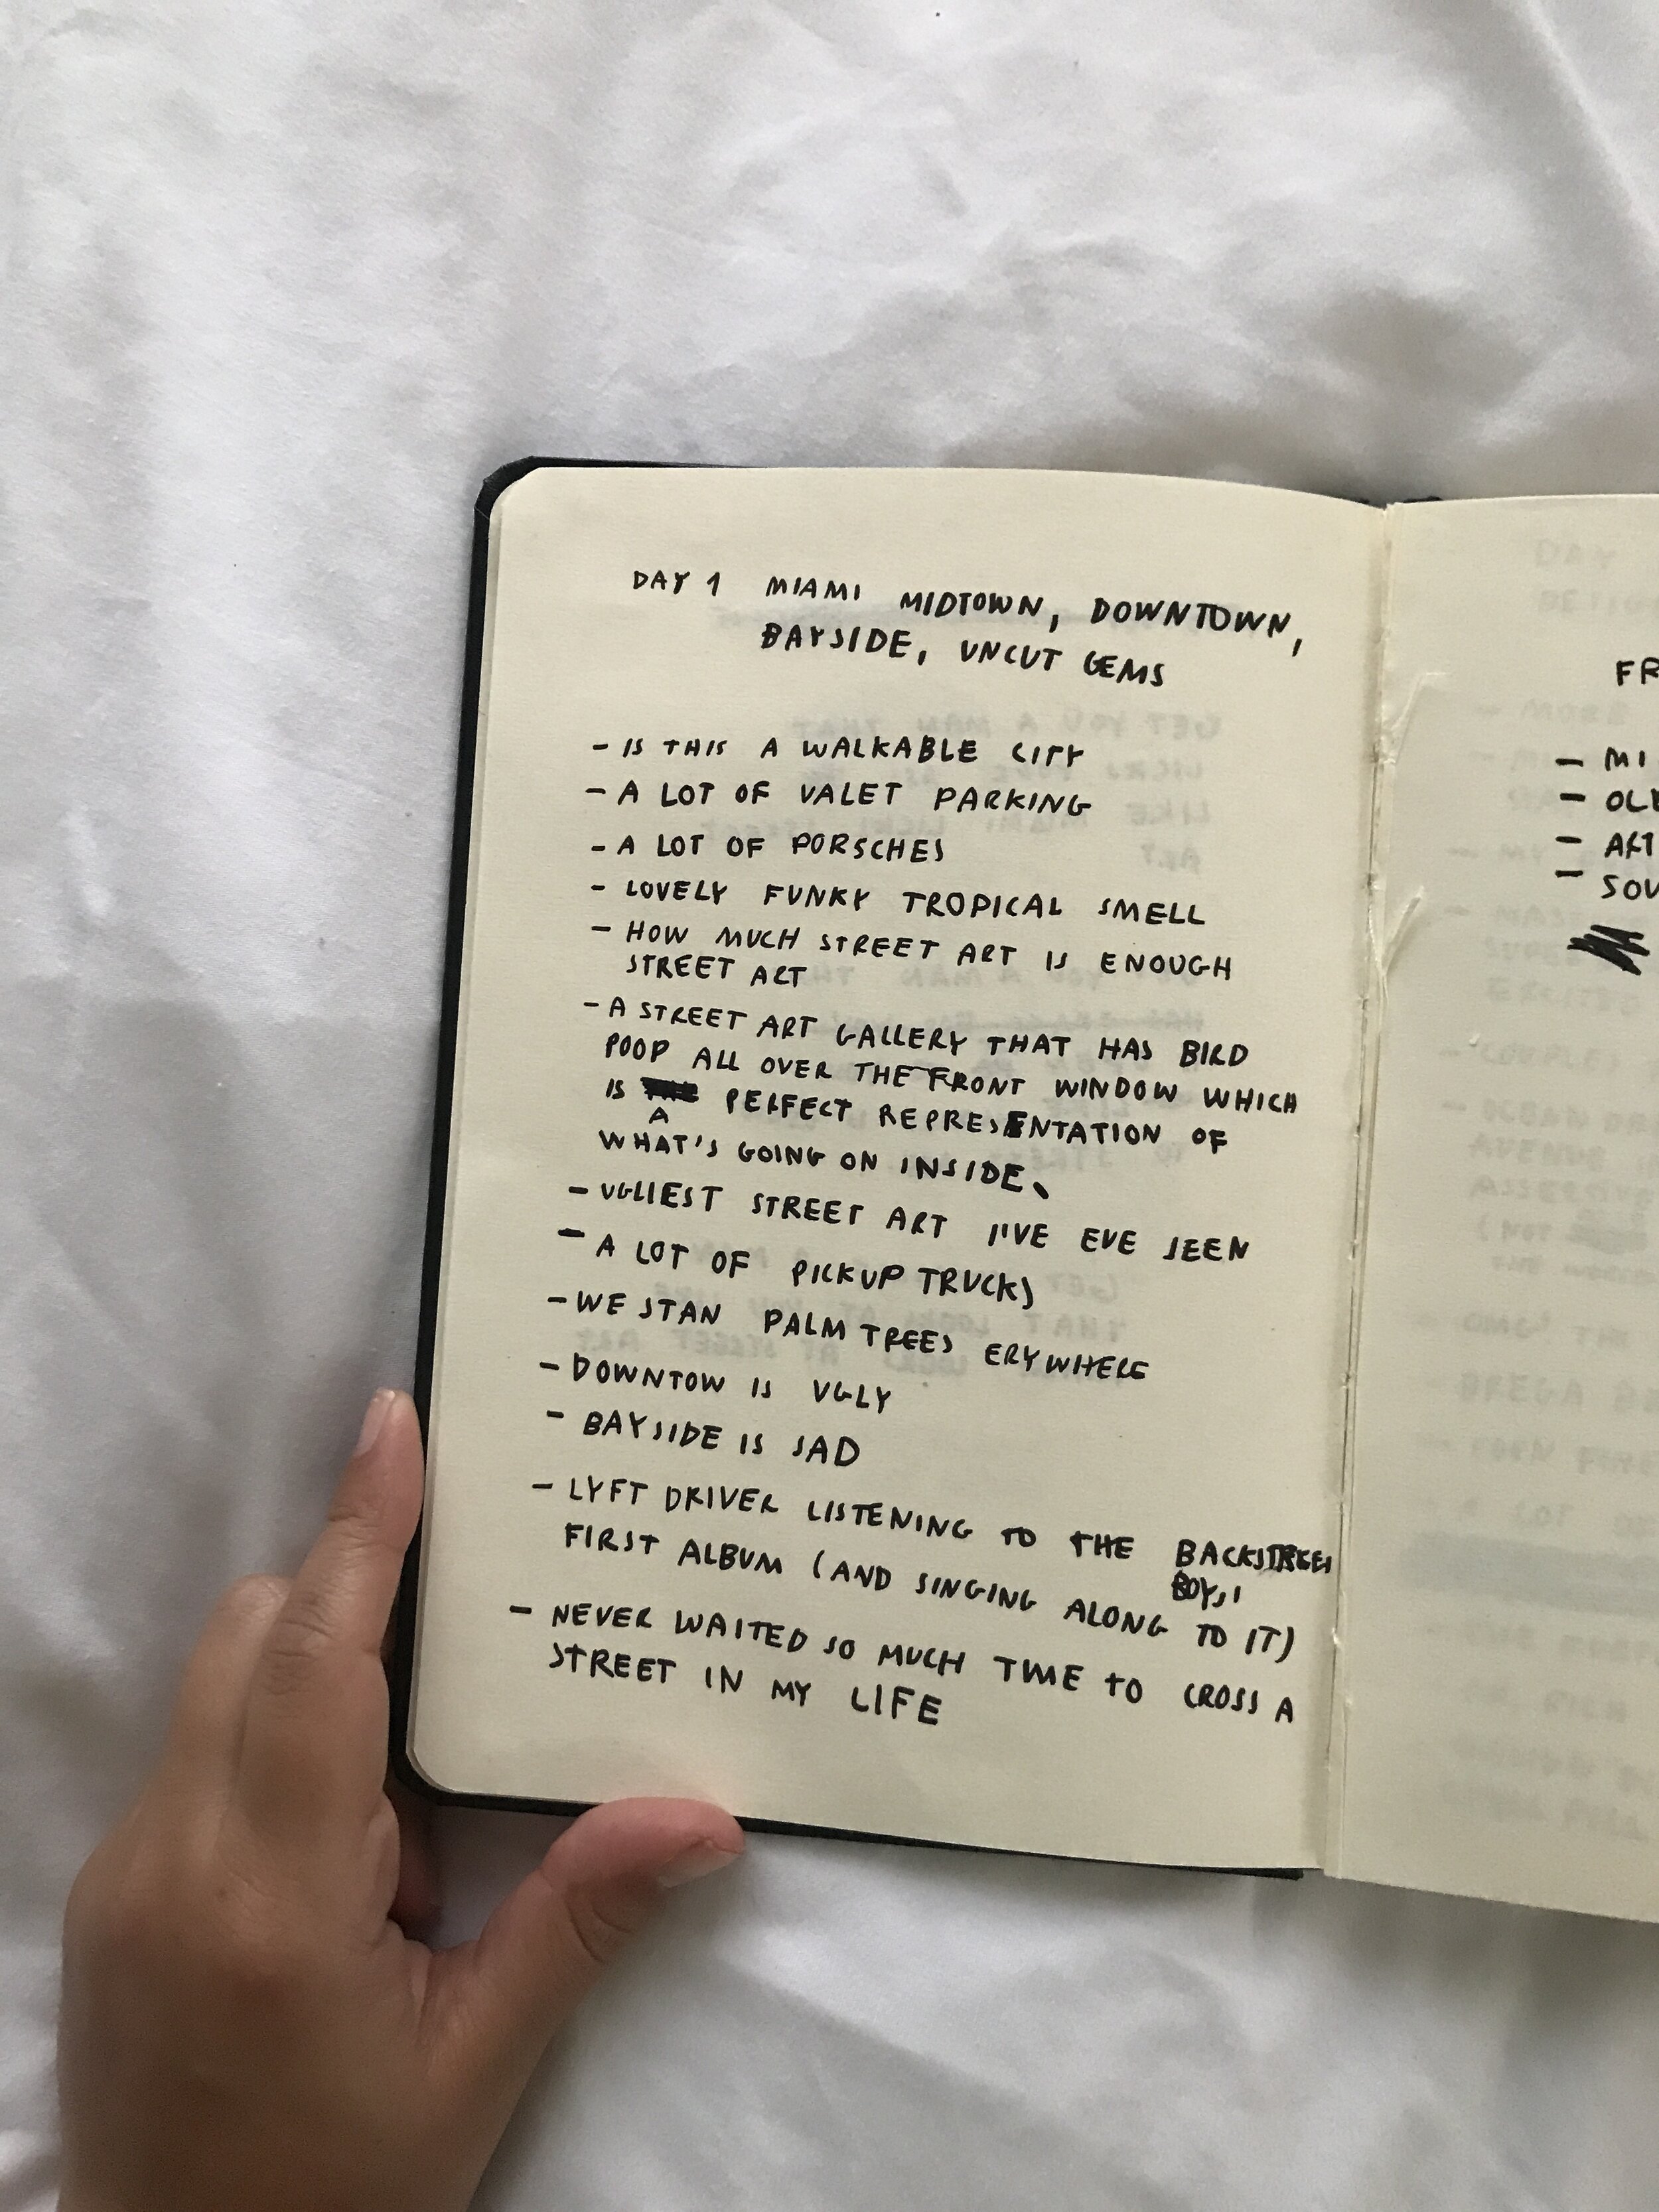 DAY 1 MIAMI MIDTOWN, DOWNTOWN,
BAYSIDE, UNCUT GEMS
- IS THIS A WALKABLE CITY
- A LOT OF VALET PARKING
- A LOT OF PORSCHES
- LOVELY FUNKY TROPICAL SMELL
- HOW MUCH STREET ART IS ENOUGH
STREET ART
- A STREET ART GALLERY THAT HAS BIRD
POOP ALL OVER THE FRONT WINDOW WHICH
IS A PERFECT REPRESENTATION OF
WHAT'S GOING ON INSIDE.
- UGLIEST STREET ART I'VE EVE SEEN
- A LOT OF PICKUP TRUCKS
- WE STAN PALM TREES ERYWHERE
- DOWNTOW IS UGLY
- BAYSIDE IS SAD
- LYFT DRIVER LISTENING TO THE BACKSTREET
BOYS'
FIRST ALBUM (AND SINGING ALONG TO IT)
- NEVER WAITED SO MUCH TIME TO CROSS A
STREET IN MY LIFE
FR
- MI
- OLD
- ART
- SOU